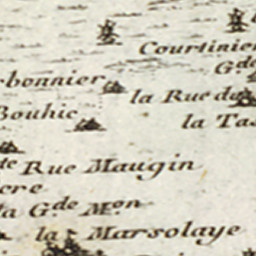 Courtinie
G.de
bonnier
la Rue du
Bouhic
la Tas
te Rue Maugin
cre
la G.de M.on
la Marsolaye